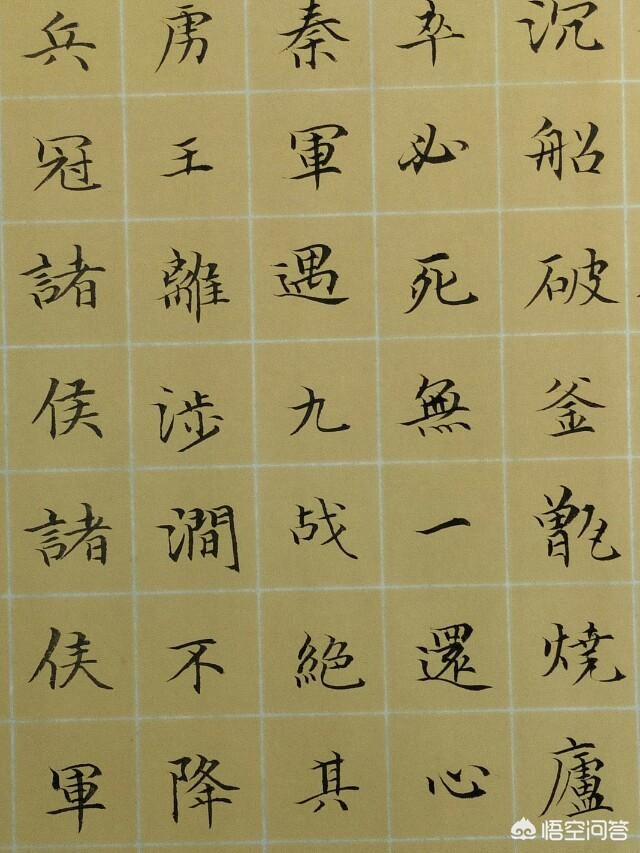 沉船破釜甑燒廬
卒必死無一還心
秦軍遇九战絕其
虜王離涉澗不降
兵冠諸侯諸侯軍
悟空问答